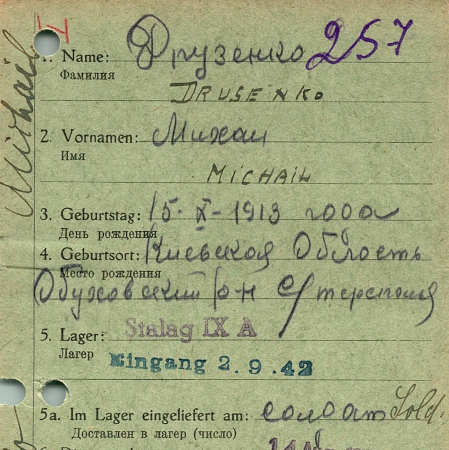 257
1. Name: Друзенко
Фамилия
DRUSENKO
2. Vornamen: Михаил
Имя
MICHAIL
Michail
3. Geburtstag: 15-X-1913 года
День рождения
4. Geburtsort: Киевская Область
Место рождения
Обуховский р-н с
5. Lager: Stalag IX A
Лагер
Eingang 2.9.42
5a. Im Lager eingeliefert am: солдат Sold.
Доставлен в лагер (число)